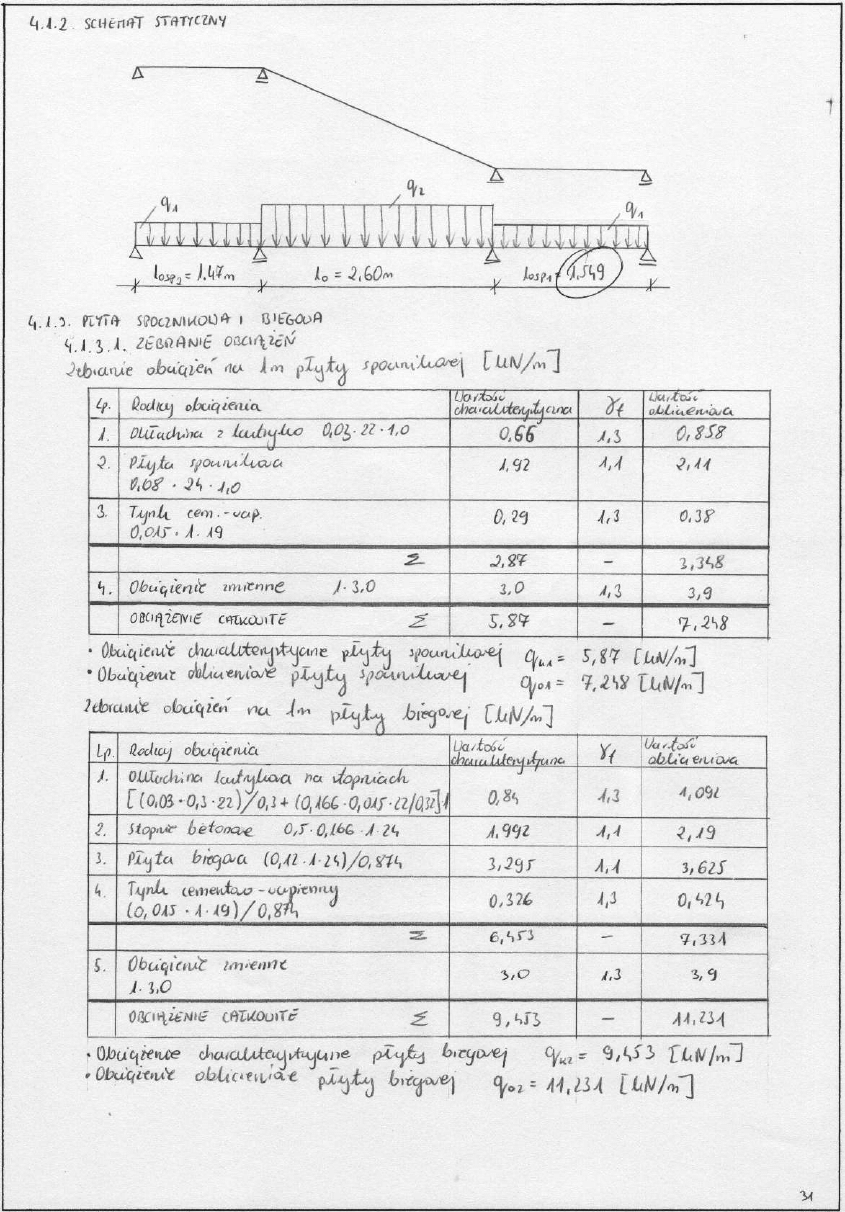 4.1.2. SCHEMAT STATYCZNY
q1
q2
q1
losp2 = 1.47m
lo = 2,60m
losp1 = 1.549
4.1.3. PŁYTA SPOCZNIKOWA I BIEGOWA
4.1.3.1. ZEBRANIE OBCIĄŻEŃ
Zebranie obciążeń na 1m płyty spocznikowej [kN/m]
Lp. Rodzaj obciążenia Wartość charakterystyczna γf Wartość obliczeniowa
1. Okładzina z lastryko 0,03·22·1,0 0,66 1,3 0,858
2. Płyta spocznikowa 1,92 1,1 2,11
0,08 · 24 · 1,0
3. Tynk cem.-wap. 0,29 1,3 0,38
0,015 · 1 · 19
Σ 2,87 – 3,348
4. Obciążenie zmienne 1·3,0 3,0 1,3 3,9
OBCIĄŻENIE CAŁKOWITE Σ 5,87 – 7,248
• Obciążenie charakterystyczne płyty spocznikowej qk1 = 5,87 [kN/m]
• Obciążenie obliczeniowe płyty spocznikowej qo1 = 7,248 [kN/m]
Zebranie obciążeń na 1m płyty biegowej [kN/m]
Lp. Rodzaj obciążenia Wartość charakterystyczna γf Wartość obliczeniowa
1. Okładzina lastrykowa na stopniach
[(0,03·0,3·22)/0,3+(0,166·0,015·22/0,3)]·1 0,84 1,3 1,092
2. Stopnie betonowe 0,5·0,166·1·24 1,992 1,1 2,19
3. Płyta biegowa (0,12·1·24)/0,874 3,295 1,1 3,625
4. Tynk cementowo-wapienny 0,326 1,3 0,424
(0,015 · 1·19)/0,874
Σ 6,453 – 7,331
5. Obciążenie zmienne 3,0 1,3 3,9
1·3,0
OBCIĄŻENIE CAŁKOWITE Σ 9,453 – 11,231
• Obciążenie charakterystyczne płyty biegowej qk2 = 9,453 [kN/m]
• Obciążenie obliczeniowe płyty biegowej qo2 = 11,231 [kN/m]
31